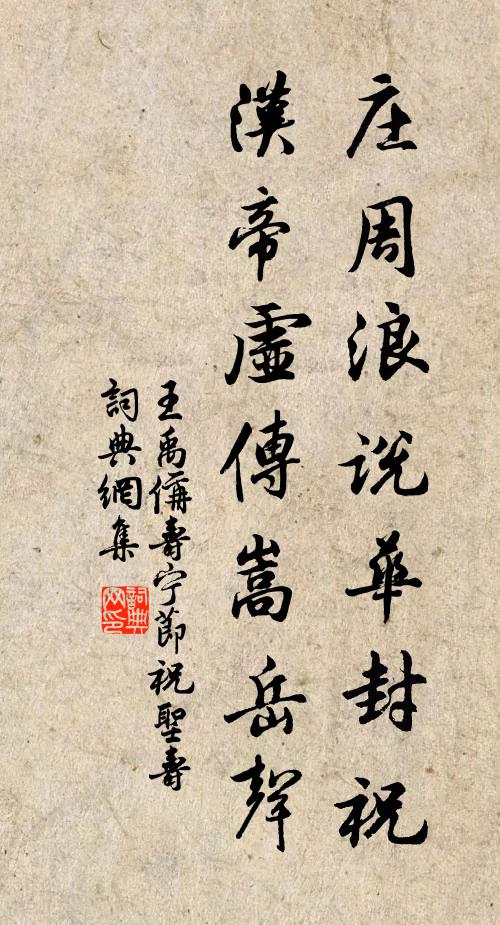 庄周浪说华封祝
漢帝虛傳嵩岳聲
王禹偁壽宁節祝聖壽
詞典網集
詞典网印